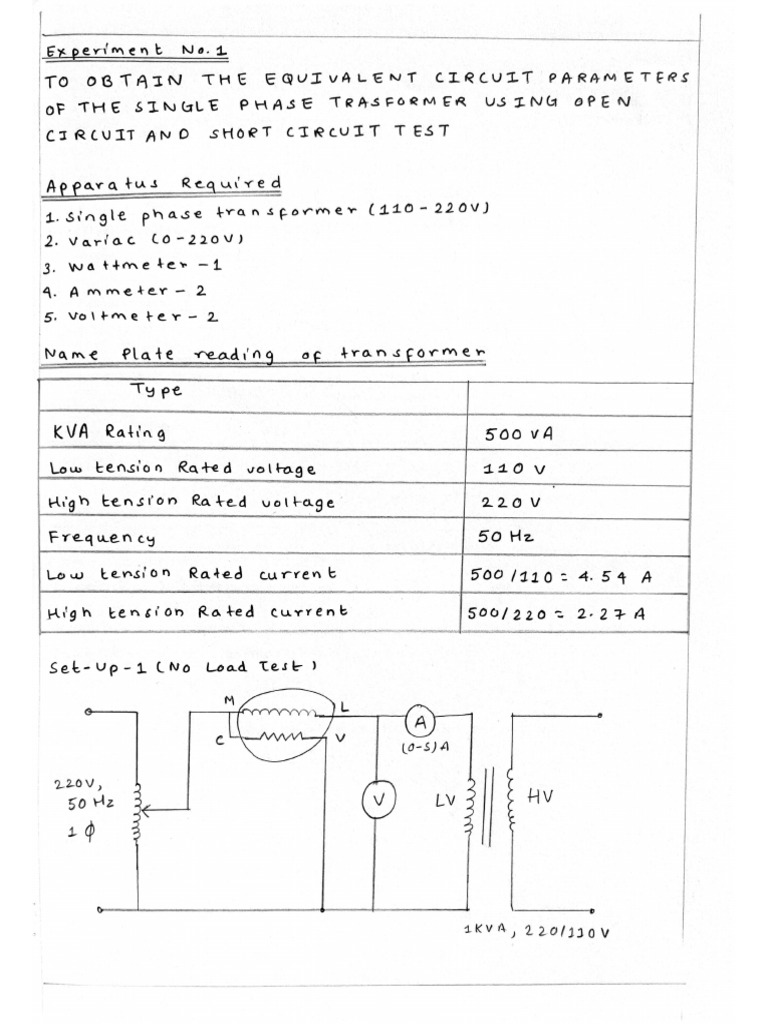 Experiment No.1
TO OBTAIN THE EQUIVALENT CIRCUIT PARAMETERS
OF THE SINGLE PHASE TRASFORMER USING OPEN
CIRCUIT AND SHORT CIRCUIT TEST
Apparatus Required
1. Single phase transformer (110-220V)
2. Variac (0-220V)
3. Wattmeter -1
4. Ammeter - 2
5. Voltmeter - 2
Name Plate reading of transformer
Type
KVA Rating 500 VA
Low tension Rated voltage 110 V
High tension Rated voltage 220 V
Frequency 50 Hz
Low tension Rated current 500/110 = 4.54 A
High tension Rated current 500/220 = 2.27 A
Set-Up-1 (No Load Test)
M L
C V
A
(0-5)A
220V,
50 Hz
1 φ
V
LV HV
1KVA, 220/110V